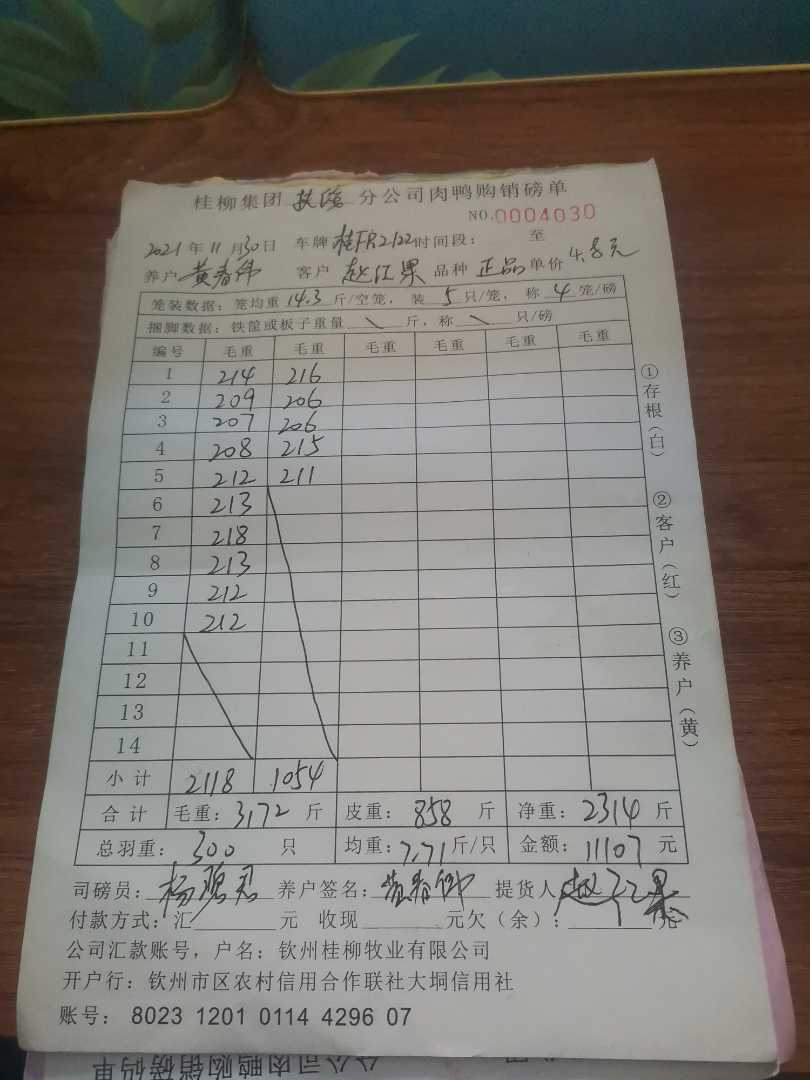 桂柳集团 扶绥 分公司肉鸭购销磅单
NO.0004030
2021年11月30日 车牌桂FR2122时间段: 至
养户黄春伟 客户 赵江果 品种 正品 单价 4.8元
笼装数据:笼均重14.3斤/空笼,装 5 只/笼,称 4 笼/磅
捆脚数据:铁筐或板子重量 \ 斤,称 \ 只/磅
编号 毛重 毛重 毛重 毛重 毛重 毛重
1 214 216
2 209 206
3 207 206
4 208 215
5 212 211
6 213
7 218
8 213
9 212
10 212
11
12
13
14
小计 2118 1054
合计 毛重:3172 斤 皮重:858 斤 净重:2314 斤
总羽重:300 只 均重:7.71斤/只 金额:11107 元
司磅员: 养户签名:黄春伟 提货人:赵江果
付款方式:汇 元 收现 元欠(余): 元
公司汇款账号,户名:钦州桂柳牧业有限公司
开户行:钦州市区农村信用合作联社大垌信用社
账号:8023 1201 0114 4296 07
①存根(白)
②客户(红)
③养户(黄)
分公司肉鸭购销磅码单